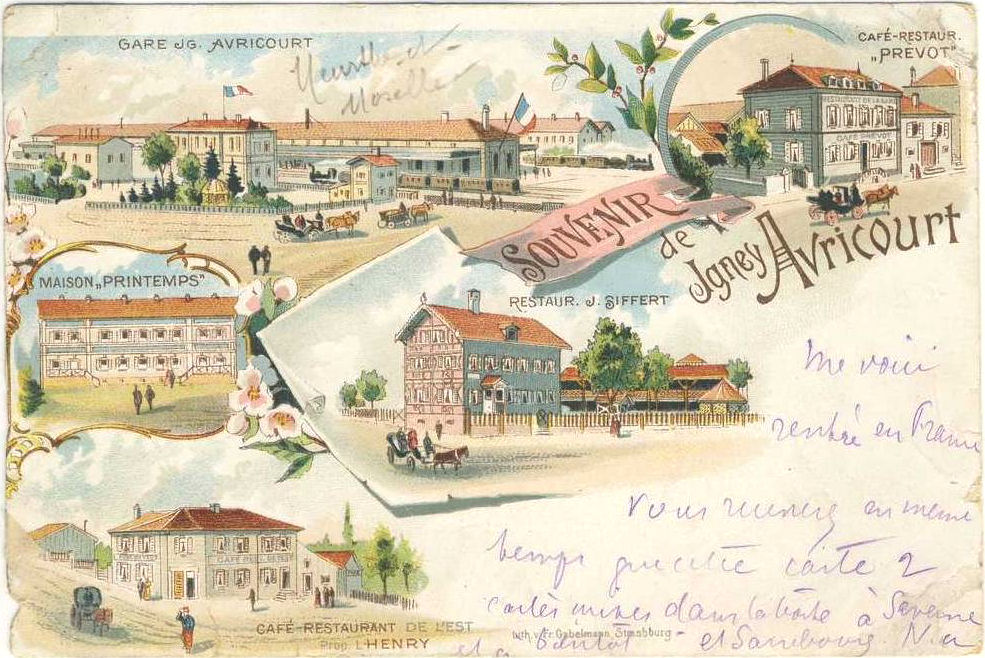 GARE JG. AVRICOURT
Moselle
CAFÉ-RESTAUR.
„PREVOT"
RESTAURANT DE LA GARE
CAFÉ PREVOT
SOUVENIR
de
Jgney
Avricourt
MAISON „PRINTEMPS"
RESTAUR. J. SIFFERT
Me voici
rentré en France
Vous recevrez en même
temps que cette carte 2
cartes mises dans la boîte à Saverne
et Sarrebourg.
et à bientôt
CAFÉ-RESTAURANT DE L'EST
Prop. L. HENRY
lith. v. Fr. Gabelmann, Strassburg